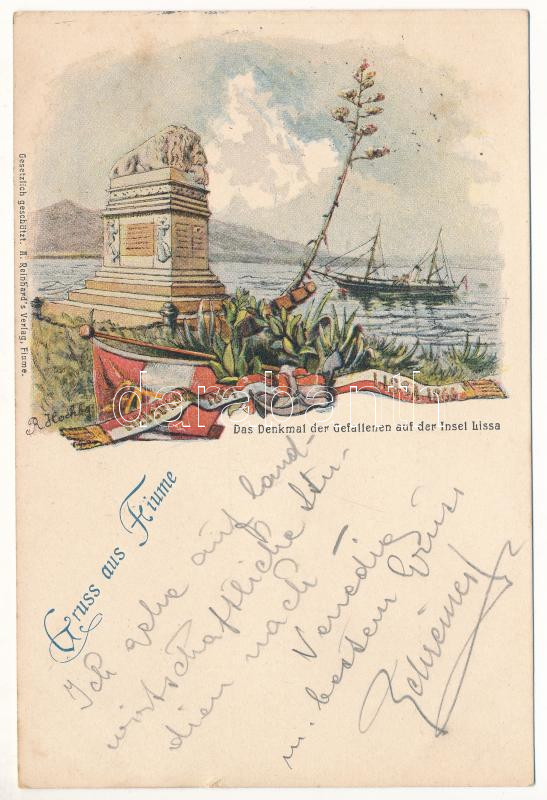 Gesetzlich geschützt. A. Reinhard's Verlag, Fiume.
darabanth
Das Denkmal der Gefallenen auf der Insel Lissa
Gruss aus Fiume
Ich gehe auf land-
wirtschaftliche Stu-
dien nach
Venedig
m. bestem Gruss